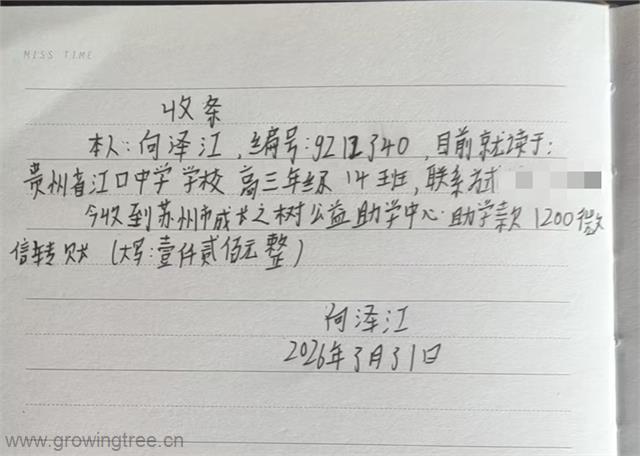 MISS TIME
收条
本人:何泽江,编号:9212340,目前就读于:
贵州省江口中学学校 高三年级 14班,联系方式
今收到苏州市成长之树公益助学中心.助学款1200微
信转账 (大写:壹仟贰佰元整)
何泽江
2026年3月31日
www.growingtree.cn